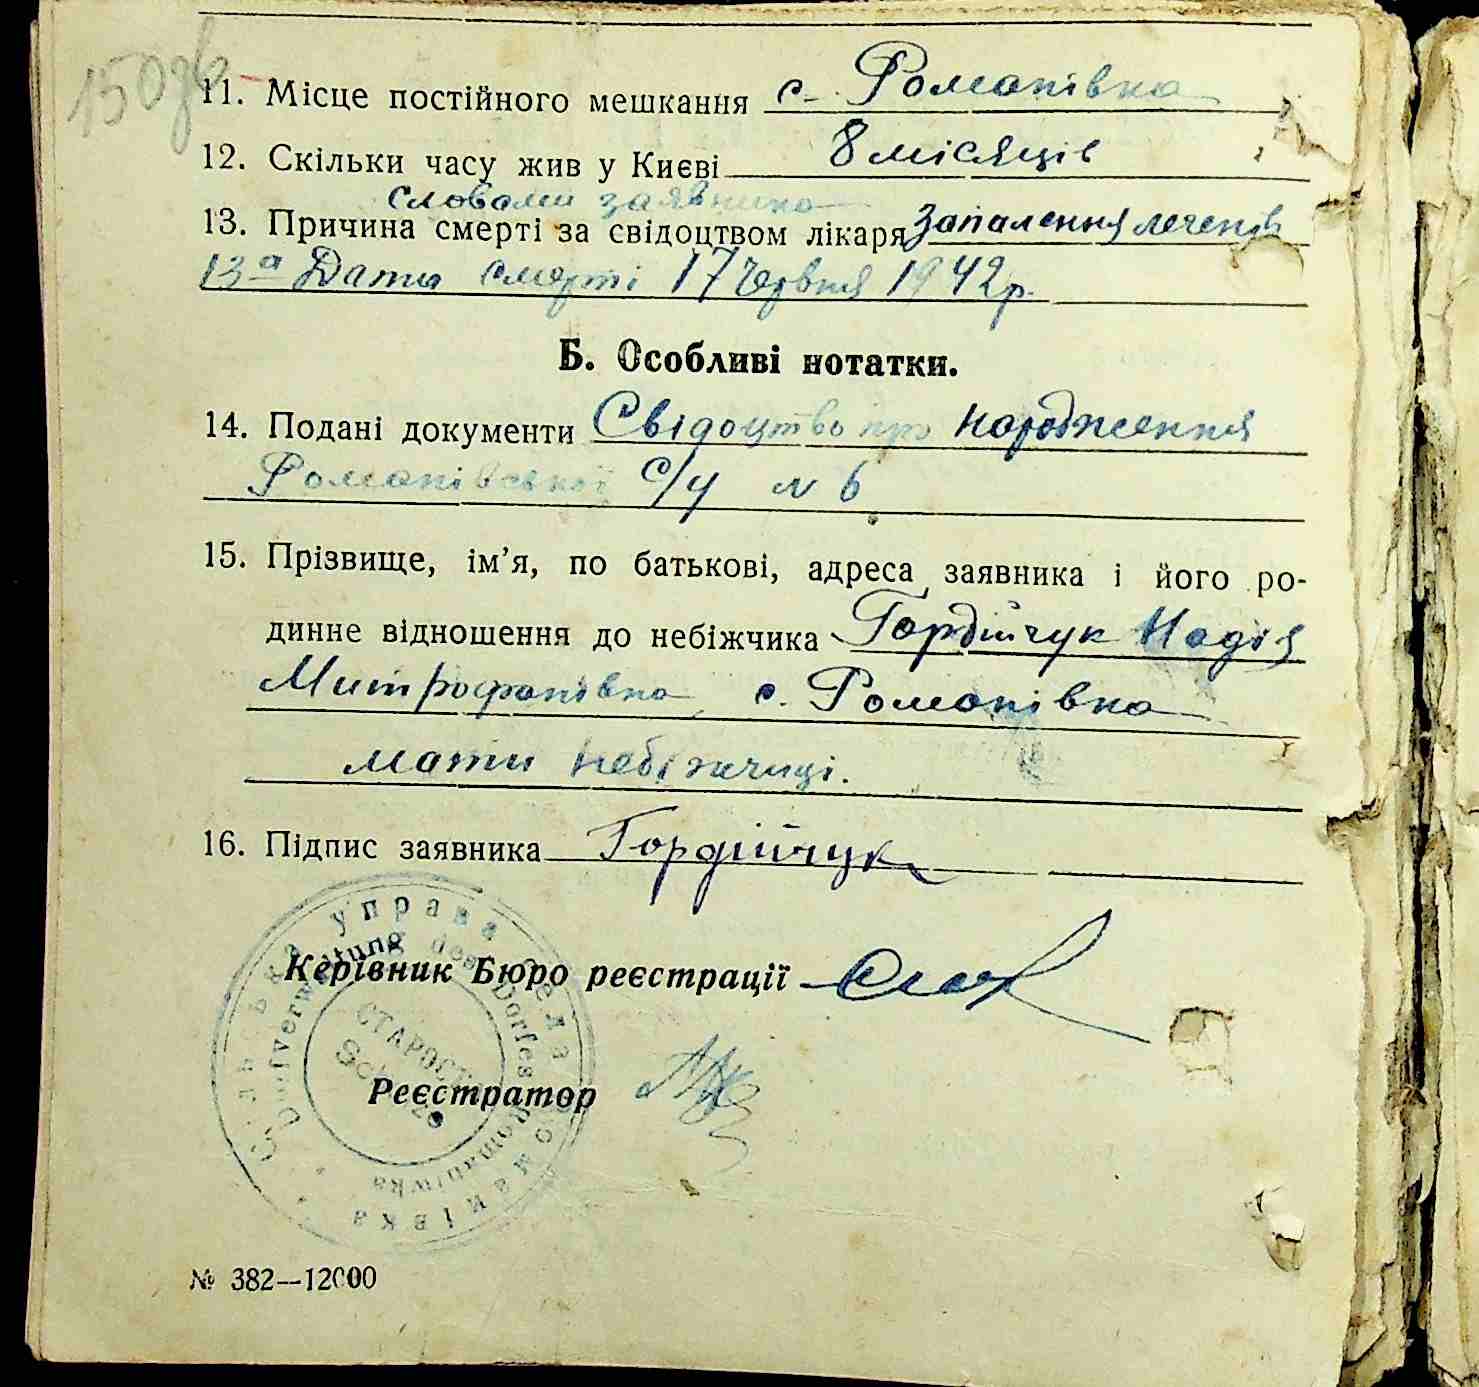 150зв
11. Місце постійного мешкання с. Романівка
12. Скільки часу жив у Києві 8 місяців
словами заявника
13. Причина смерті за свідоцтвом лікаря Запалення легенів
13а Дата смерті 17 червня 1942 р.
Б. Особливі нотатки.
14. Подані документи Свідоцтво про народження
Романівської с/у № 6
15. Прізвище, ім’я, по батькові, адреса заявника і його ро-
динне відношення до небіжчика Гордійчук Надія
Митрофанівна, с. Романівка
мати небіжчиці.
16. Підпис заявника Гордійчук
Сільська управа села Романівка
Dorfverwaltung des Dorfes Romaniwka
СТАРОСТА
Schulze
Керівник Бюро реєстрації
Реєстратор
№ 382—12000